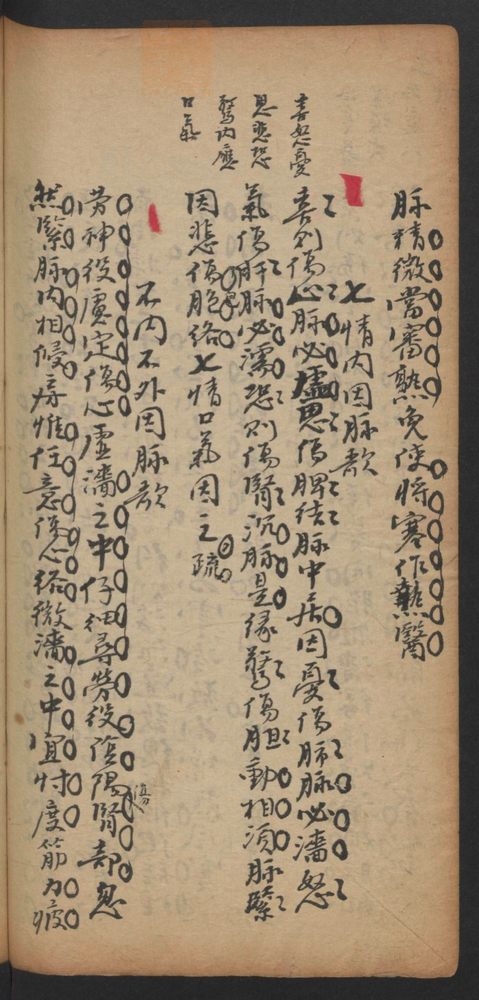 脉精微當審熟免使將寒作熱醫
七情內因脉歌
喜怒憂
思悲恐
驚內應
口氣
喜則傷心脉必虛思傷脾結脉中居因憂傷肺脉必濇怒
氣傷肝脉必濡恐則傷腎沉脉是緣驚傷胆動相須脉緊
因悲傷胞絡七情口氣因之疏
不內不外因脉歌
勞神役慮定傷心虛濇之中仔細尋勞役陰陽傷腎部忽
然緊脉內相侵房惟任意傷心絡微濇之中宜忖度筋力疲